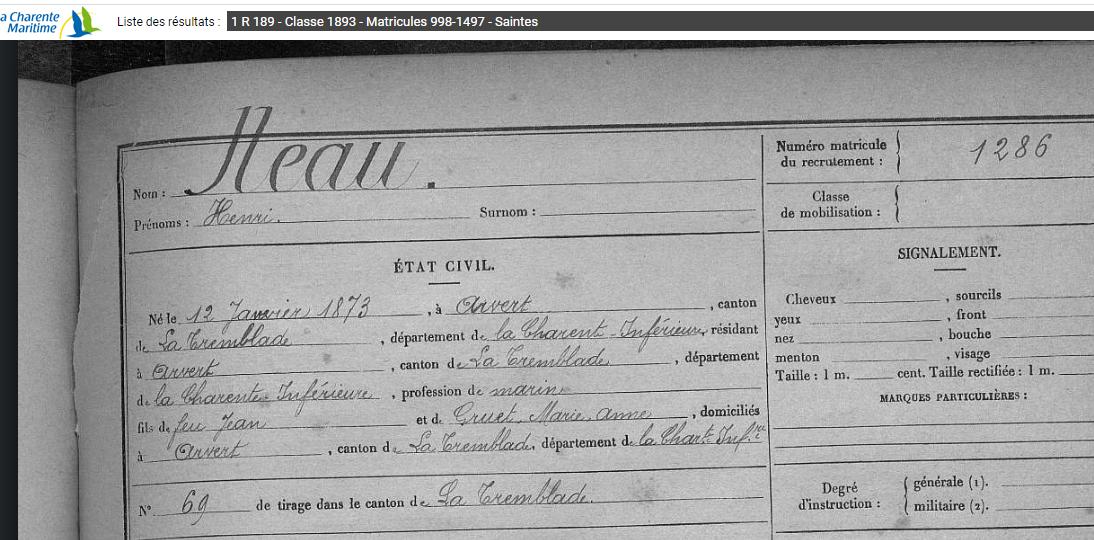 a Charente
Maritime
Liste des résultats : 1 R 189 - Classe 1893 - Matricules 998-1497 - Saintes
Nom : Neau.
Prénoms : Henri. Surnom :
Numéro matricule
du recrutement : 1286
Classe
de mobilisation :
ÉTAT CIVIL.
Né le 12 Janvier 1873, à Arvert, canton
de La Tremblade, département de la Charent-Inférieure, résidant
à Arvert, canton de La Tremblade, département
de la Charente Inférieure, profession de marin
fils de feu Jean et de Gruet, Marie, Anne, domiciliés
à Arvert, canton de La Tremblade, département de la Chart. Inf.re
N° 69 de tirage dans le canton de La Tremblade.
SIGNALEMENT.
Cheveux , sourcils
yeux , front
nez , bouche
menton , visage
Taille : 1 m. cent. Taille rectifiée : 1 m.
MARQUES PARTICULIÈRES :
Degré
d'instruction :
générale (1).
militaire (2).